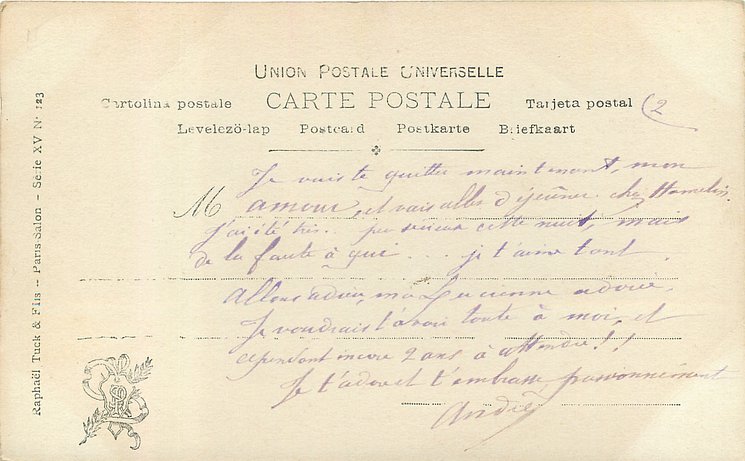 UNION POSTALE UNIVERSELLE
Cartolina postale CARTE POSTALE Tarjeta postal (2
Levelező-lap Postcard Postkarte Briefkaart
Je vais te quitter maintenant, mon
M amour et vais aller déjeûner chez Hamelin.
J'ai été très .. peu sérieux cette nuit, mais
de la faute à qui ... je t'aime tant.
Allons adieu, ma Lucienne adorée.
Je voudrais t'avoir toute à moi, et
cependant encore 2 ans à attendre!!
Je t'adore et t'embrasse passionnément
André
Raphaël Tuck & Fils -- Paris Salon -- Série XV No 123